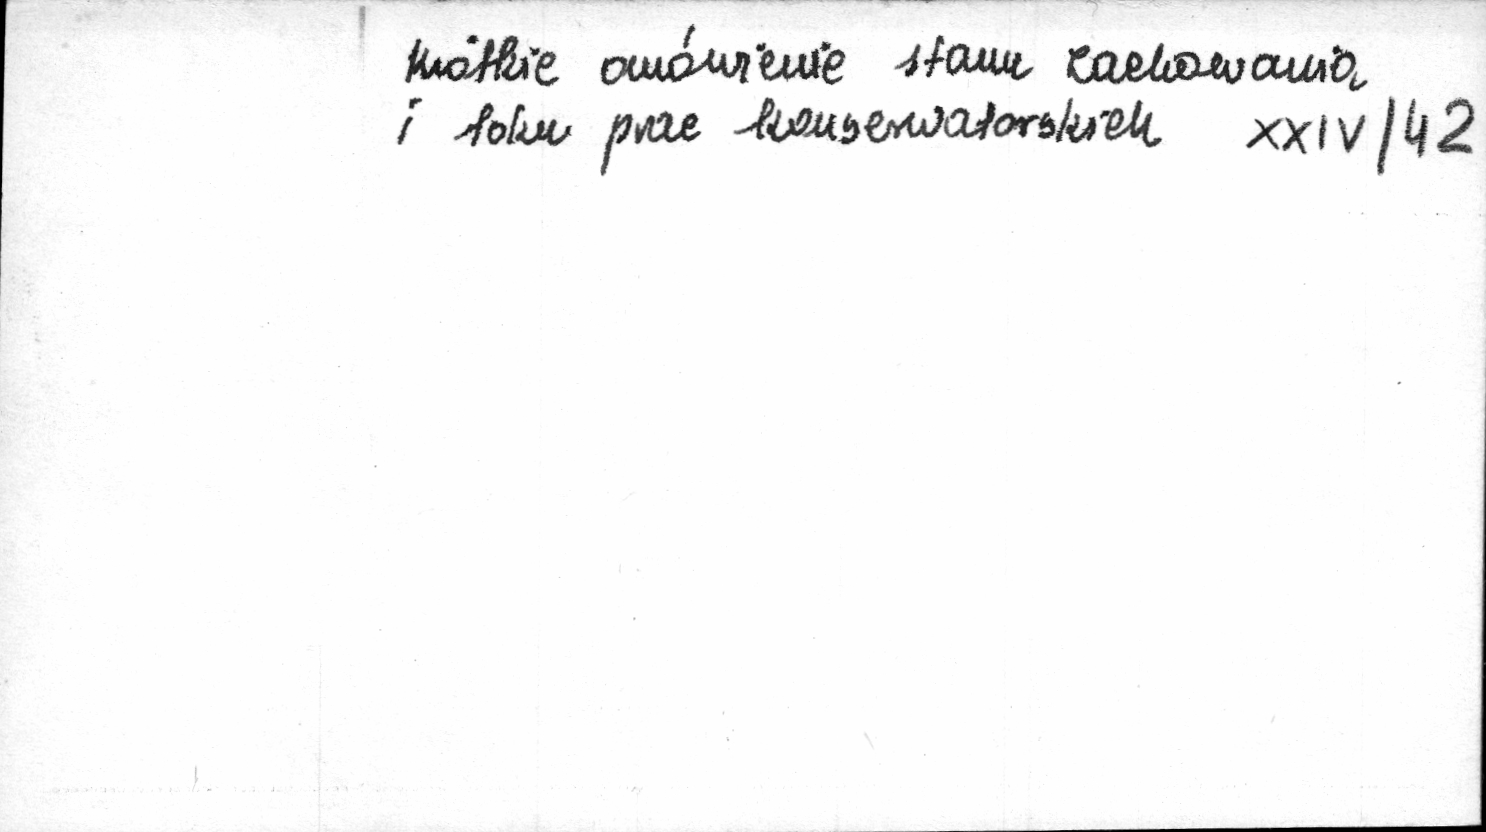 Krótkie omówienie stanu zachowania
i toku prac konserwatorskich XXIV/42